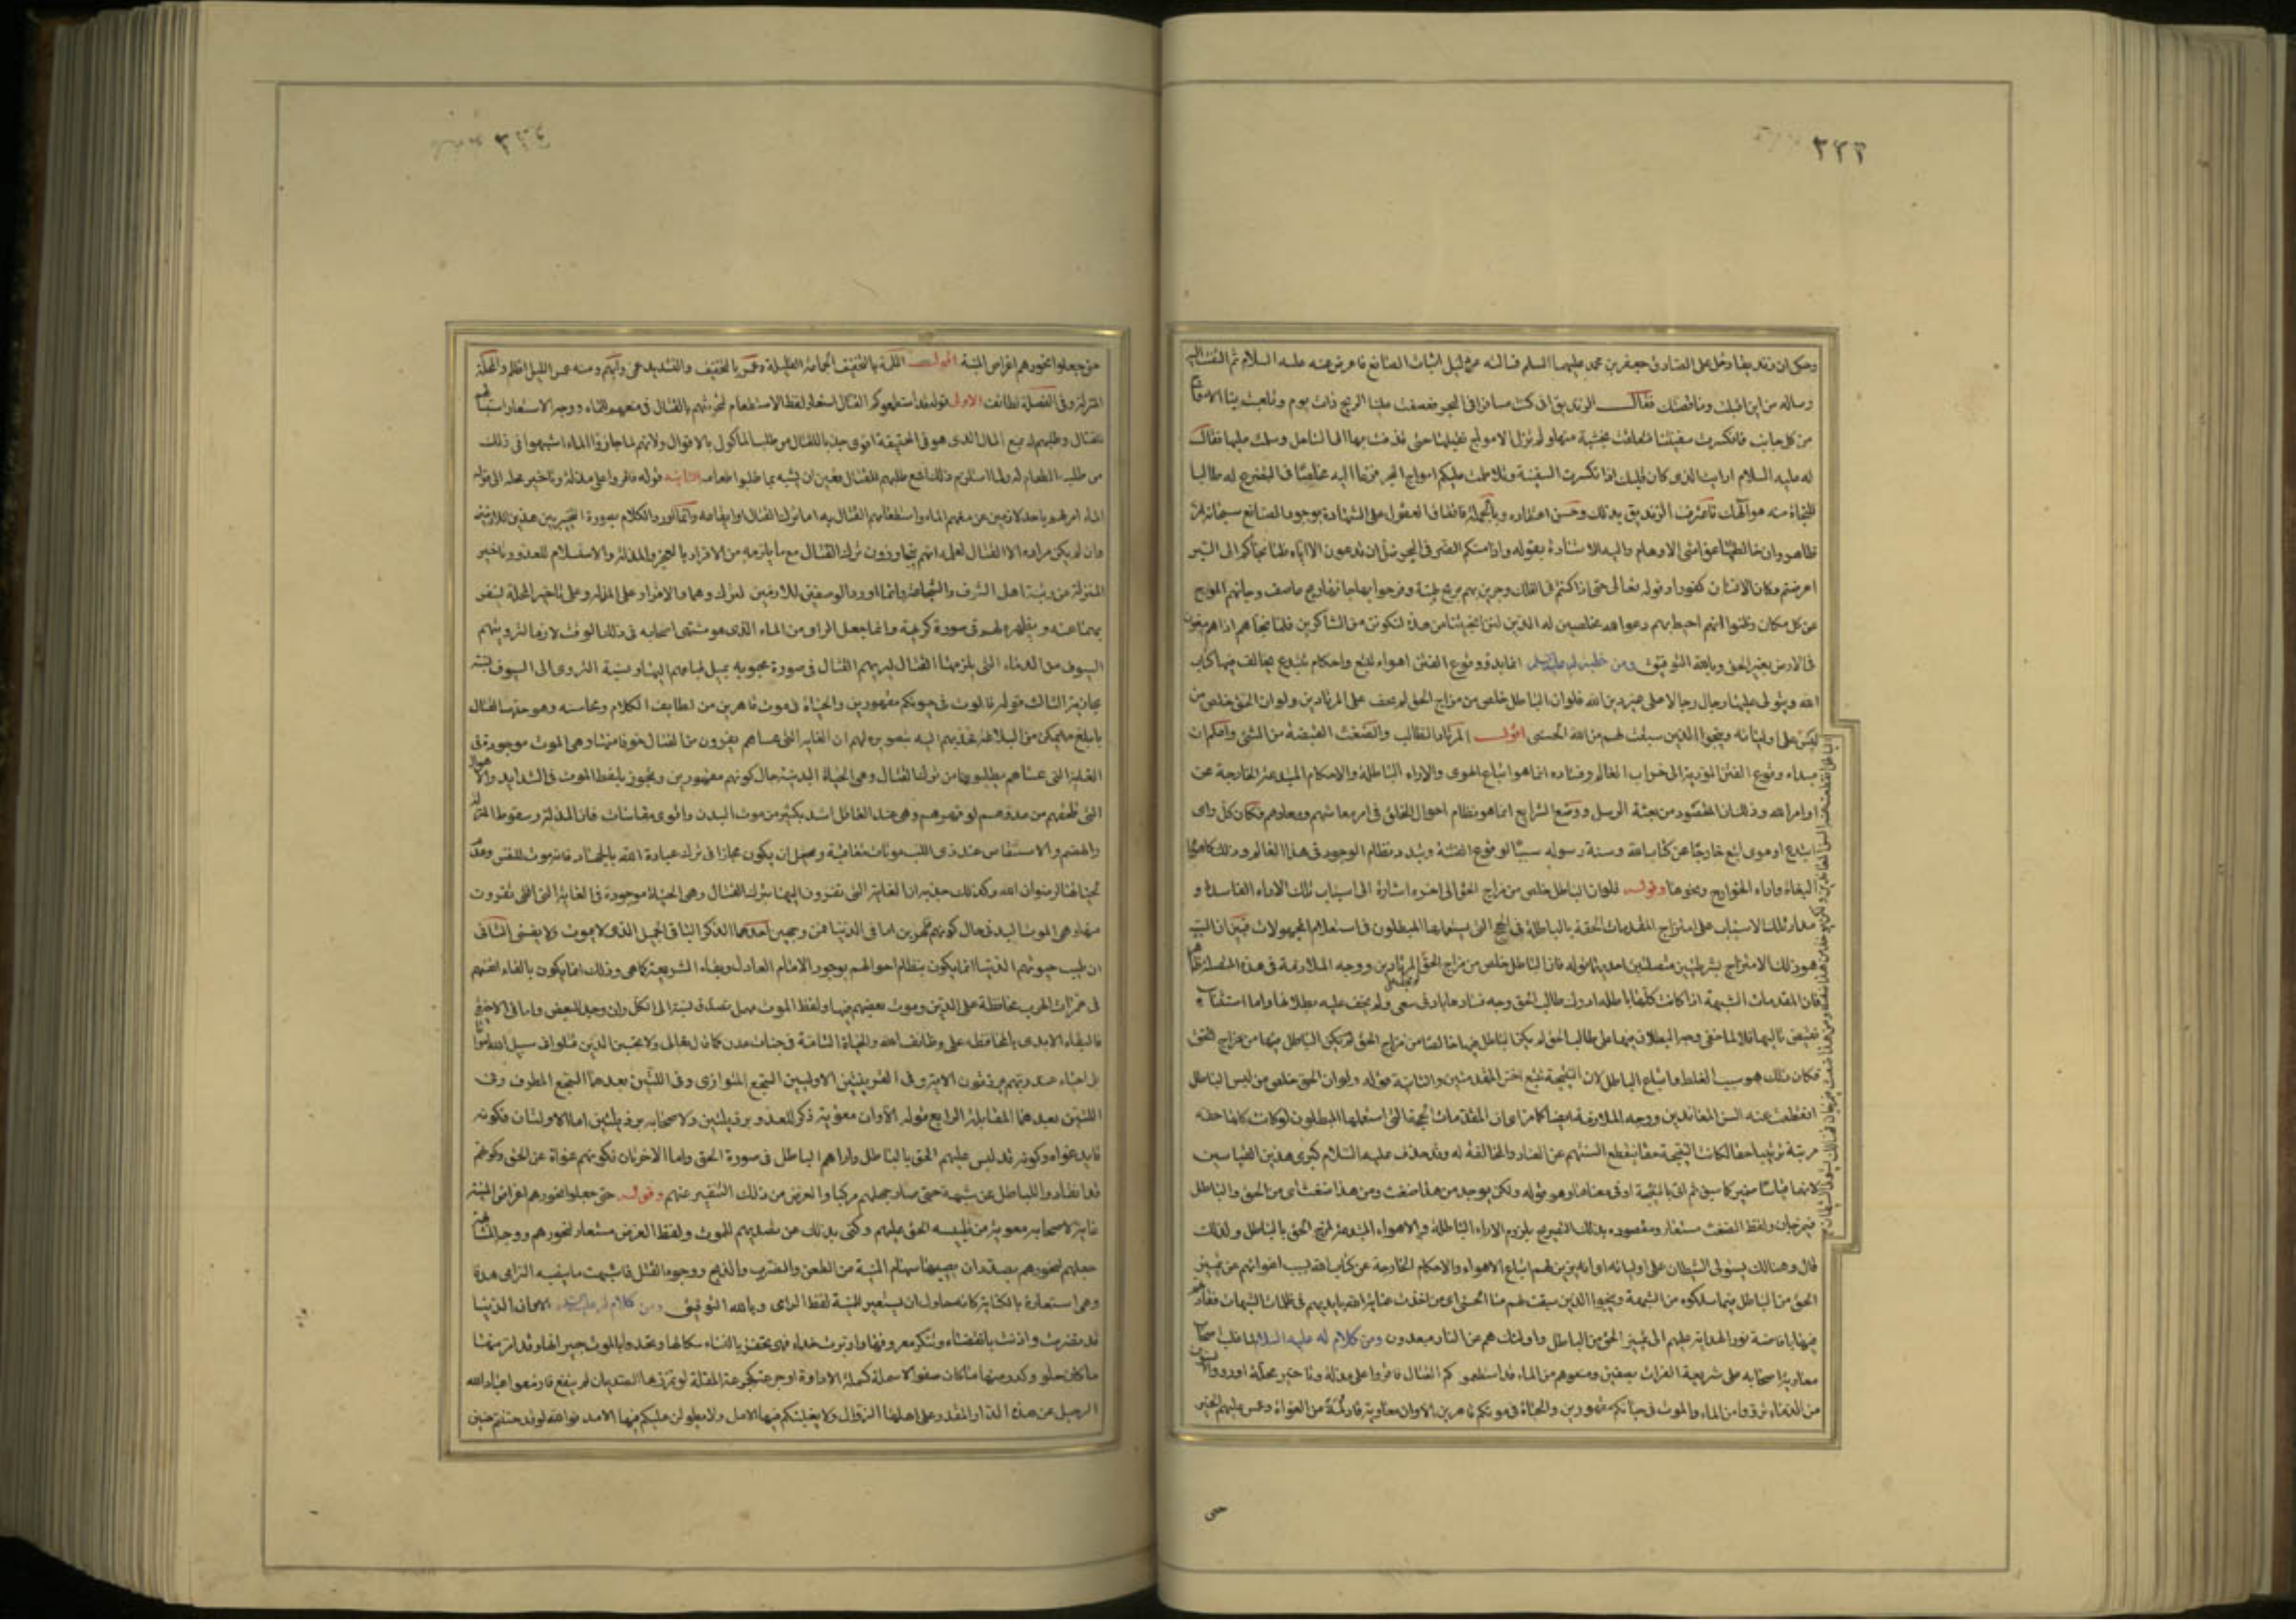 ٣٢٢
وحكى ان زنديقا دخل على الصادق جعفر بن محمد عليهما السلم فسأله عن دليل اثبات الصانع فاعرض عنه عليه السلام ثم التفت اليه
وساله من اين اقبلت وما قصتك فقال الزنديق انى كنت مسافرا فى البحر فعصفت علينا الريح ذات يوم وتلعبت بنا الامواج
من كل جانب فانكسرت سفينتنا فتعلقت بخشبة منها ولم تزل الامواج تقلبها حتى قذفت بها الى الساحل وسلمت عليها فقال
له عليه السلام ارايت الذى كان قلبك اذا تكسرت السفينة وتلاطمت عليكم امواج البحر فزعا اليه مخلصا فى التضرع له طالبا
للنجاة منه هو الهك فاعترف الزنديق بذلك وحسن اعتقاده وبالجملة فاتفاق العقول على الشهادة بوجود الصانع سبحانه امر
ظاهر وان خالطها غواشى الاوهام واليه الاشارة بقوله واذا مسكم الضر فى البحر ضل من تدعون الا اياه فلما نجاكم الى البر
اعرضتم وكان الانسان كفورا وقوله تعالى حتى اذا كنتم فى الفلك وجرين بهم بريح طيبة وفرحوا بها جاءتها ريح عاصف وجاءهم الموج
من كل مكان وظنوا انهم احيط بهم دعوا الله مخلصين له الدين لئن انجيتنا من هذه لنكونن من الشاكرين فلما نجاهم اذا هم يبغون
فى الارض بغير الحق وبالله التوفيق ومن خطبة له عليه السلم انما بدو وقوع الفتن اهواء تتبع واحكام تبتدع يخالف فيها كتاب
الله ويتولى عليها رجال رجالا على غير دين الله فلوان الباطل خلص من مزاج الحق لم يخف على المرتادين ولو ان الحق خلص من
لبس
على اوليائه وينجوا الذين سبقت لهم من الله الحسنى اقول المرتاد الطالب والضغث القبضة من الشىء والحكم ان
مبداء وقوع الفتن المؤدية الى خراب العالم وفساده انما هو اتباع الهوى والاراء الباطلة والاحكام المبتدعة الخارجة عن
اوامر الله وذلك ان المقصود من بعثة الرسل ووضع الشرايع انما هو نظام احوال الخلق فى امر معاشهم ومعادهم فكان كل راى
ابتدع او هوى اتبع خارجا عن كتاب الله وسنة رسوله سببا لوقوع الفتنة وتبدد نظام الوجود فى هذا العالم وذلك كاهواء
البغاة واراء الخوارج ونحوها وقوله فلوان الباطل خلص من مزاج الحق الى اخره اشارة الى اسباب تلك الاراء الفاسدة و
مدار تلك الاسباب على امتزاج المقدمات الحقة بالباطلة فى الحجج التى يستعملها المبطلون فى استعلام المجهولات فبين ان السبب
هو ذلك الامتزاج بشرطيتين متصلتين احديهما قوله فان الباطل خلص من مزاج الحق المرتادين ووجه الملازمة فى هذه المتصلة ظاهر
فان مقدمات الشبهة اذا كانت كلها باطلة ادرك طالب الحق وجه فسادها بادنى سعى ولم يخف عليه بطلانها واما استثناء
نقيض تاليها فلانه لما خفى وجه البطلان فيها على طالب الحق لم يكن الباطل فيها خالصا من مزاج الحق
فكان ذلك هو سبب الغلط واتباع الباطل لان النتيجة تتبع اخس المقدمتين والثانية قوله ولو ان الحق خلص من لبس الباطل
انقطعت عنه السن المعاندين ووجه الملازمة ايضا كما مر فان مقدمات الحجة التى استعملها المبطلون لو كانت كلها حقة
مرتبة ترتيبا حقا لكانت النتيجة حقا ينقطع السنتهم عن العناد والمخالفة له وقد حذف عليه السلام كبرى هذين القياسين
لانهما قياسا ضمير كما سبق ثم اتى بالنتيجة او فى معناها وهو قوله ولكن يوخذ من هذا ضغث ومن هذا ضغث اى من الحق والباطل
فيمزجان ولفظ الضغث مستعار ومقصوده بذلك التصريح بلزوم الاراء الباطلة والاهواء المبتدعة لمزج الحق بالباطل ولذلك
قال وهنالك يستولى الشيطان على اوليائه اى انه يزين لهم اتباع الاهواء والاحكام الخارجة عن كتاب الله بسبب اغوائهم عن تمييز
الحق من الباطل فيما سلكوه من الشبهة وينجوا الذين سبقت لهم منا الحسنى اى من اخذت عناية الله بايديهم فى ظلمات الشبهات فقادتهم
فيها بافاضة نور الهداية عليهم الى تمييز الحق من الباطل واولئك هم عن النار مبعدون ومن كلام له عليه السلام لما غلب اصحاب
معاوية اصحابه على شريعة الفرات بصفين ومنعوهم من الماء قد استطعموكم القتال فاقروا على مذلة وتاخير محلة او رووا السيوف
من الدماء ترووا من الماء والموت فى حياتكم مقهورين والحياة فى موتكم قاهرين الا وان معاوية قاد لمة من الغواة وعمس عليهم الخبر
الباطل انقطعت عنه السن المعاندين ولكن يوخذ من هذا ضغث ومن هذا ضغث فيمزجان فهنالك يستولى الشيطان
حتى
حتى جعلوا نحورهم اغراض المنية اقول اللمة بالتخفيف الجماعة القليلة وعمس بالتخفيف والتشديد عمى وابهم ومنه عمس الليل اظلم والمحلة
المنزلة وفى الفصل لطائف الاولى قوله قد استطعموكم القتال استعار لفظ الاستطعام لتحرشهم بالقتال فى منعهم الماء ووجه الاستعارة
للقتال وطلبهم له بمنع الماء الذى هو فى الحقيقة اقوى جذبا للقتال من طلب المأكول بالاقوال ولانهم لما حازوا الماء اشبهوا فى ذلك
من طلب الطعام له ولما استلزم ذلك المنع طلبهم للقتال تعين ان يشبه بما طلبوا اطعامه الثانية قوله فاقروا على مذلة وتاخير محلة الى قوله
الماء امر لهم باحد لازمين عن منعهم الماء واستطعامهم القتال به اما ترك القتال او ايقاعه وانما اورد الكلام بصورة التخيير بين هذين اللازمين
وان لم يكن مراده الا القتال لعلمه انهم لا يختارون ترك القتال مع ما يلزمه من الاقرار بالعجز والمذلة والاستسلام للعدو وتاخير
المنزلة عن رتبة اهل الشرف والشجاعة وانما اورد الوصفين اللازمين لترك وهما الاقرار على المذلة وعلى تاخير المحلة لينفر
بهما عنه ويظهره لهم فى صورة كريهة وانما جعل الرى من الماء الذى هو مشتهى اصحابه فى ذلك الوقت لازما لترويتهم
السيوف من الدماء التى يلزمها القتال ليريهم القتال فى صورة محبوبة يميل طباعهم اليها ونسبة التروى الى السيوف نسبة
مجازية الثالث قوله فالموت فى حياتكم مقهورين والحياة فى موتكم قاهرين من لطايف الكلام ومحاسنه وهو جذب الى القتال
بابلغ ما يمكن من البلاغة فجذبهم اليه بتصويره لهم ان الغاية التى عساهم يفرون من القتال خوفا منها وهى الموت موجودة فى
الغاية التى عساهم يطلبونها من ترك القتال وهى الحياة البدنية حال كونهم مقهورين وتجوز بلفظ الموت فى الشدايد والاهوال
التى تلحقهم من عدوهم لو قهرهم وهى عند العاقل اشد بكثير من موت البدن واقوى مقاساة فان المذلة وسقوط المنزلة
والهضم والاستنقاص عند ذى اللب موتات متعاقبة ويحتمل ان يكون مجازا فى ترك عبادة الله بالجهاد فانه موت للنفس وعدم
حياتها برضوان الله وكذلك جذبه ان الغاية التى تفرون اليها بترك القتال وهى الحياة موجودة فى الغاية التى تفرون
منها وهى الموت البدنى حال كونهم قاهرين اما فى الدنيا فمن وجهين احدهما الذكر الباقى الجميل الذى لا يموت ولا يفنى الثانى
ان طيب حيوتهم الدنيا انما يكون بنظام احوالهم بوجود الامام العادل وبقاء الشريعة كما هى وذلك انما يكون بالقاء انفسهم
فى غمرات الحرب محافظة على الدين وموت بعضهم فيها ولفظ الموت مهمل تصدق نسبته الى الكل وان وجد البعض واما فى الاخرة
فالبقاء الابدى بالمحافظة على وظائف الله والحياة التامة فى جنات عدن كما قال تعالى ولا تحسبن الذين قتلوا فى سبيل الله امواتا
بل احياء عند ربهم يرزقون الاية وفى القرينتين الاوليين السجع المتوازى وفى اللتين بعدهما السجع المطرف وفى
اللتين بعدهما المقابلة الرابع قوله الا وان معوية ذكر للعدو برذيلتين ولاصحابه برذيلتين اما الاوليان فكونه
قايد غواة وكونه قد لبس عليهم الحق بالباطل واراهم الباطل فى صورة الحق واما الاخريان فكونهم غواة عن الحق وكونهم
قد انقادوا للباطل عن شبهة حتى صار جهلهم مركبا والغرض من ذلك التنفير عنهم وقوله حتى جعلوا نحورهم اغراض المنية
غاية لاصحاب معوية من تلبيسه الحق عليهم وكنى بذلك عن تصديهم للموت ولفظ الغرض مستعار لنحورهم ووجه المشابهة
جعلهم نحورهم بصدد ان يصيبها سهام المنية من الطعن والضرب والذبح ووجوه القتل فاشبهت ما ينصبه الرامى هدفا
وهى استعارة بالكناية كانه حاول ان يستعير للمنية لفظ الرامى وبالله التوفيق ومن كلام له عليه السلم الا وان الدنيا
قد تصرمت واذنت بانقضاء وتنكر معروفها وادبرت حذاء فهى تحفز بالفناء سكانها وتحدوا بالموت جيرانها وقد امر منها
ما كان حلو وكدر منها ما كان صفوا الا سملة كسملة الاداوة او جرعة كجرعة المقلة لو تمززها الصديان لم ينقع فازمعوا عباد الله
الرحيل عن هذه الدار المقدور على اهلها الزوال ولا يغلبنكم فيها الامل ولا يطولن عليكم فيها الامد فوالله لو حننتم حنين